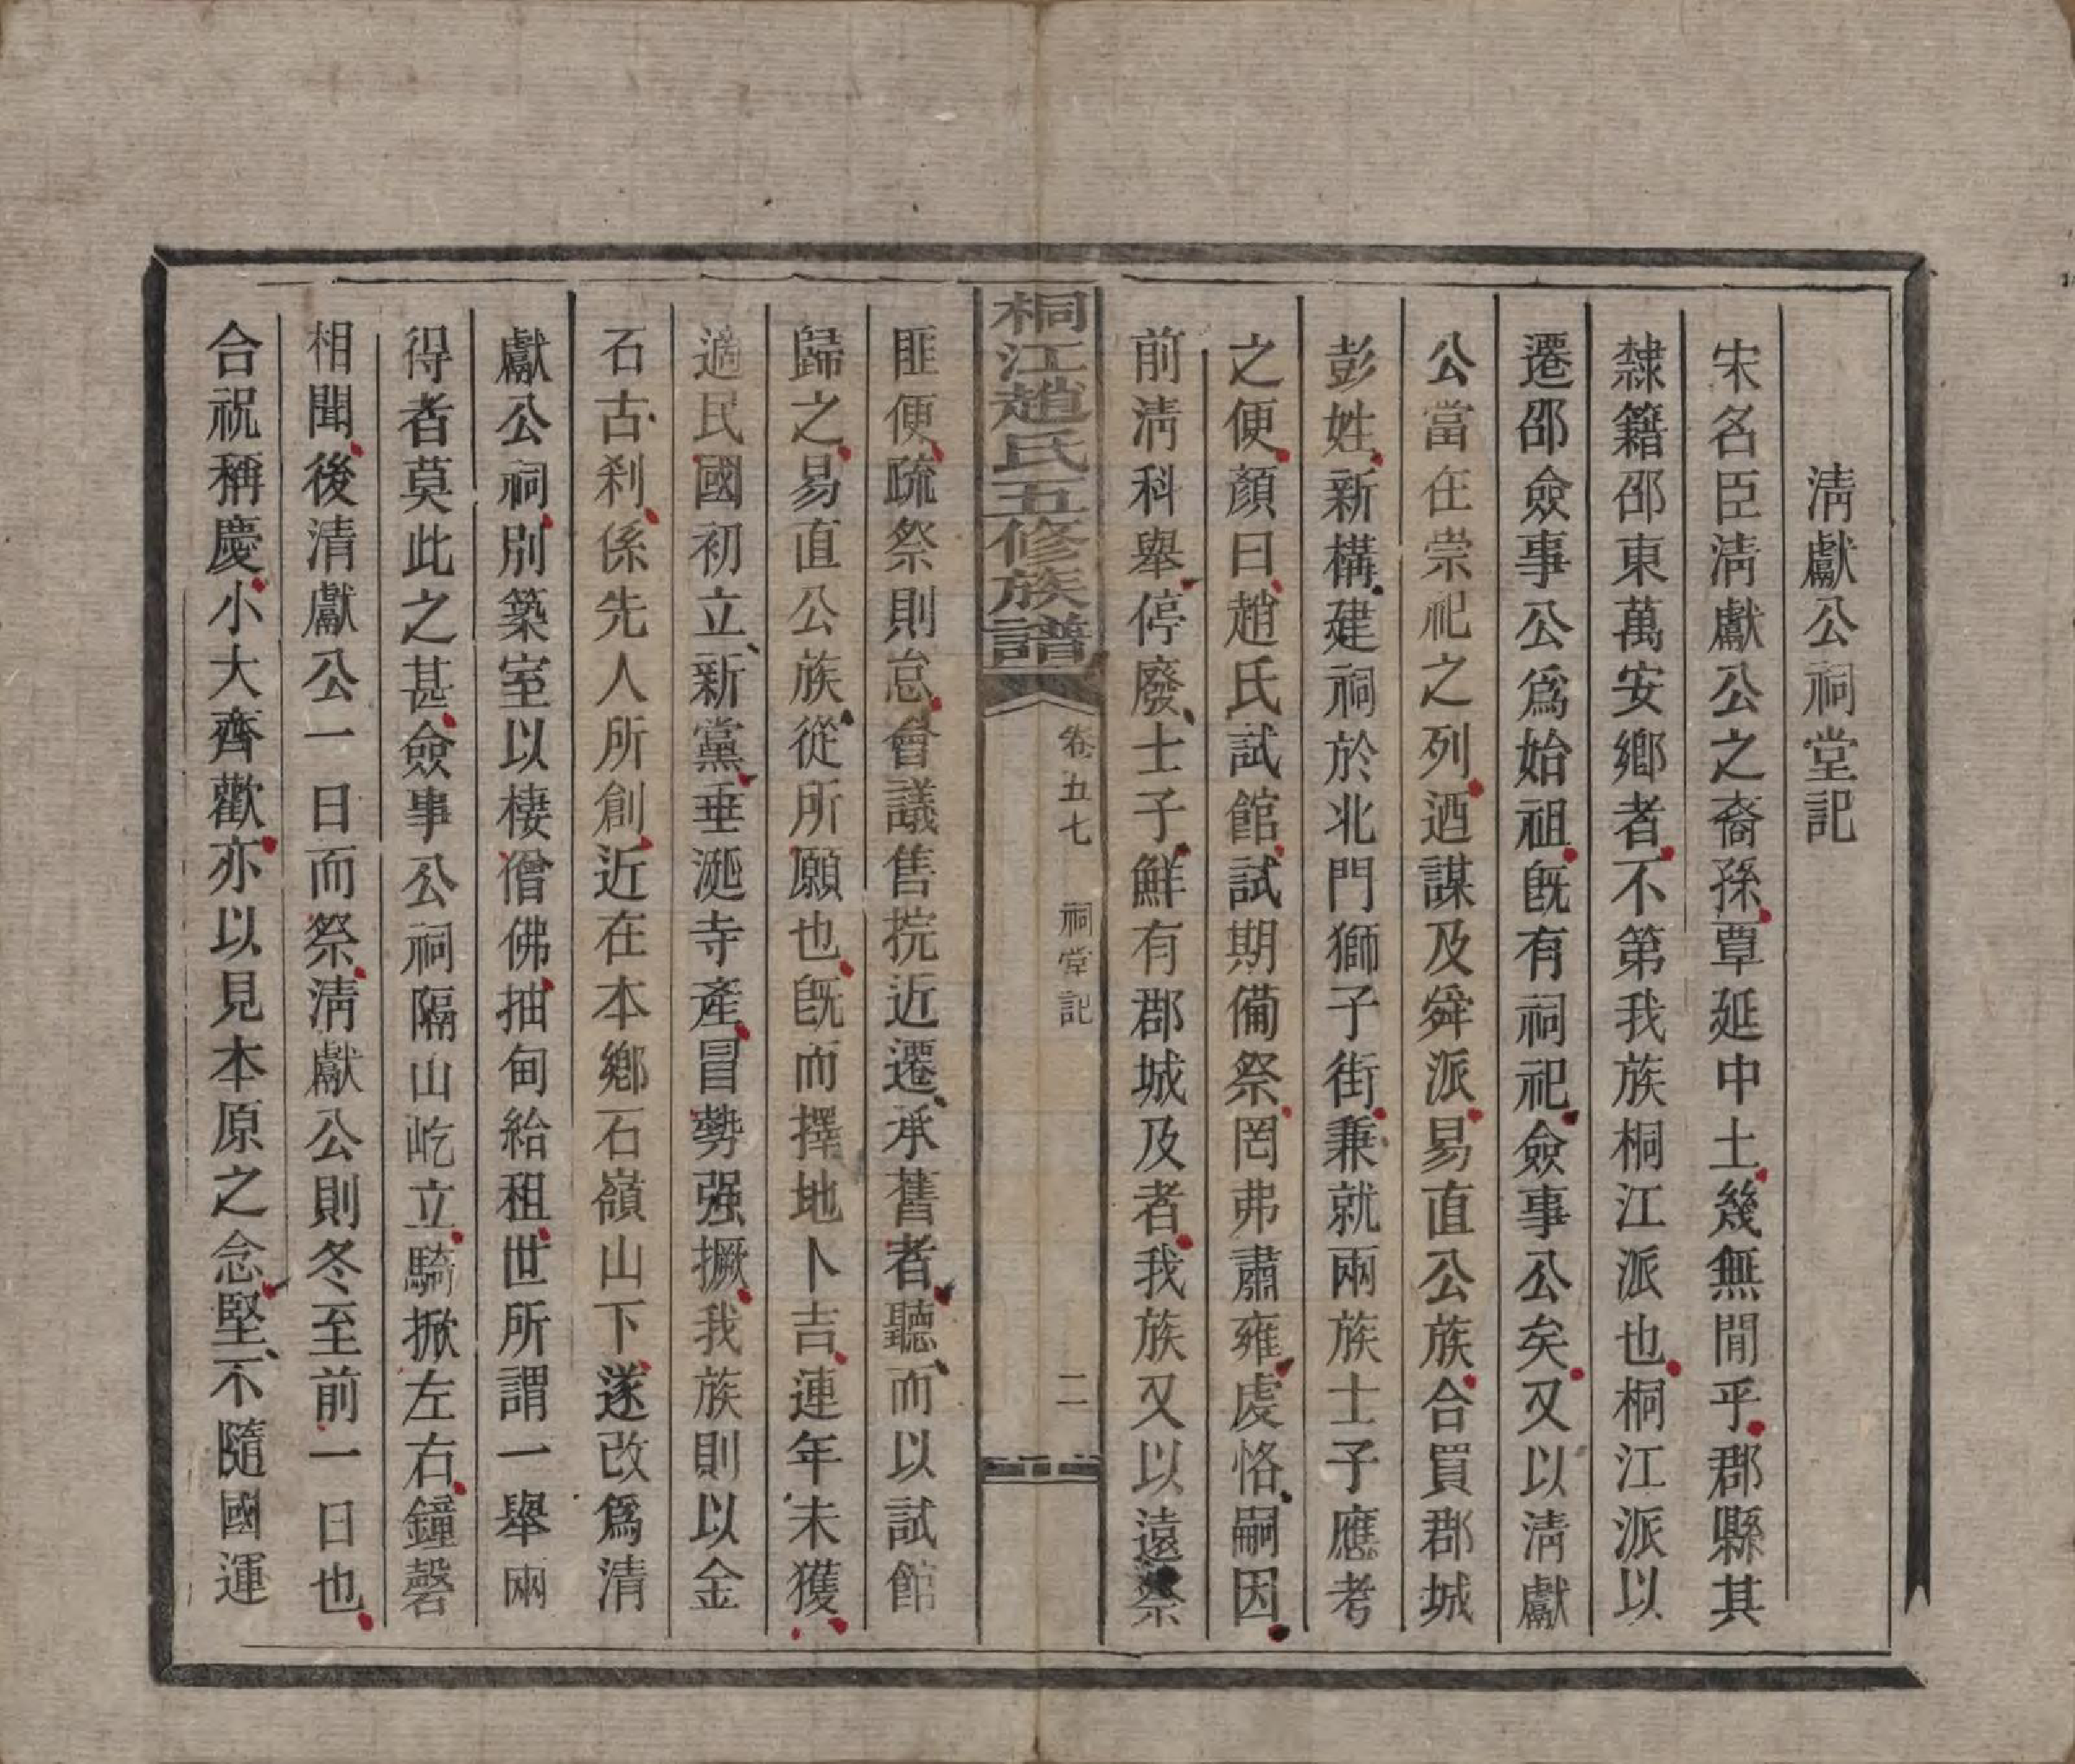 清獻公祠堂記
宋名臣清獻公之裔孫覃延中土幾無閒乎郡縣其
隸籍邵東萬安鄉者不第我族桐江派也桐江派以
遷邵僉事公爲始祖旣有祠祀僉事公矣又以清獻
公當在崇祀之列迺謀及舜派易直公族合買郡城
彭姓新構建祠於北門獅子街兼就兩族士子應考
之便顏曰趙氏試館試期備祭罔弗肅雍虔恪嗣因
前清科舉停廢士子鮮有郡城及者我族又以遠祭
桐江趙氏五修族譜
卷五七 祠堂記 二
匪便疏祭則怠會議售捖近遷承舊者聽而以試館
歸之易直公族從所願也旣而擇地卜吉連年未獲
適民國初立新黨垂涎寺產冒勢强撅我族則以金
石古刹係先人所創近在本鄉石嶺山下遂改爲清
獻公祠別築室以棲僧佛抽甸給租世所謂一舉兩
得者莫此之甚僉事公祠隔山屹立騎掀左右鐘磬
相聞後清獻公一日而祭清獻公則冬至前一日也
合祝稱慶小大齊歡亦以見本原之念堅不隨國運